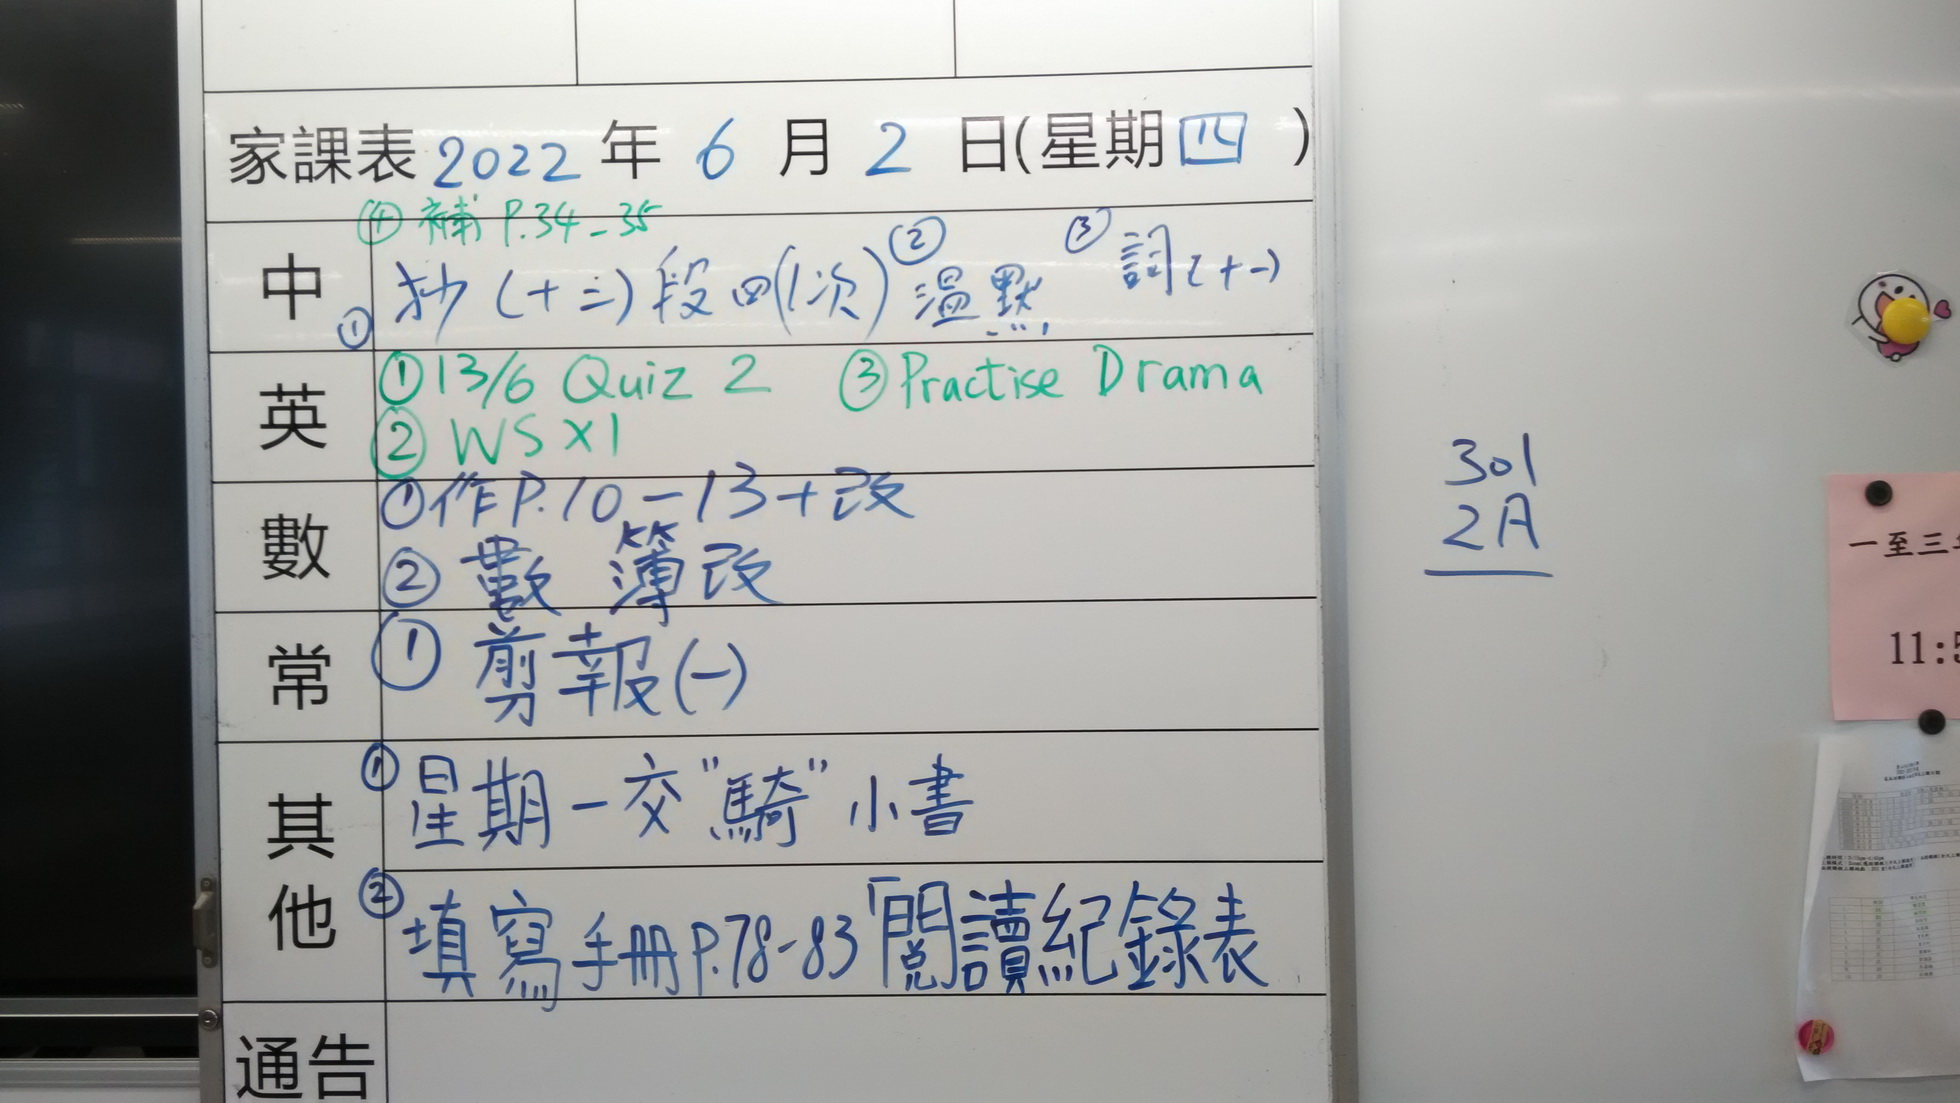 家課表 2022 年 6 月 2 日(星期四)
④ 補 P.34-35
中 ① 抄(十三)段四(1次) ② 溫默 ③ 詞(十一)
英 ① 13/6 Quiz 2 ③ Practise Drama
② WS X1
數 ① 作 P.10-13+改
② 數簿改
常 ① 剪報(一)
其他 ① 星期一交"騎"小書
② 填寫手冊P.78-83「閱讀紀錄表
通告
301
2A
一至三
11:5